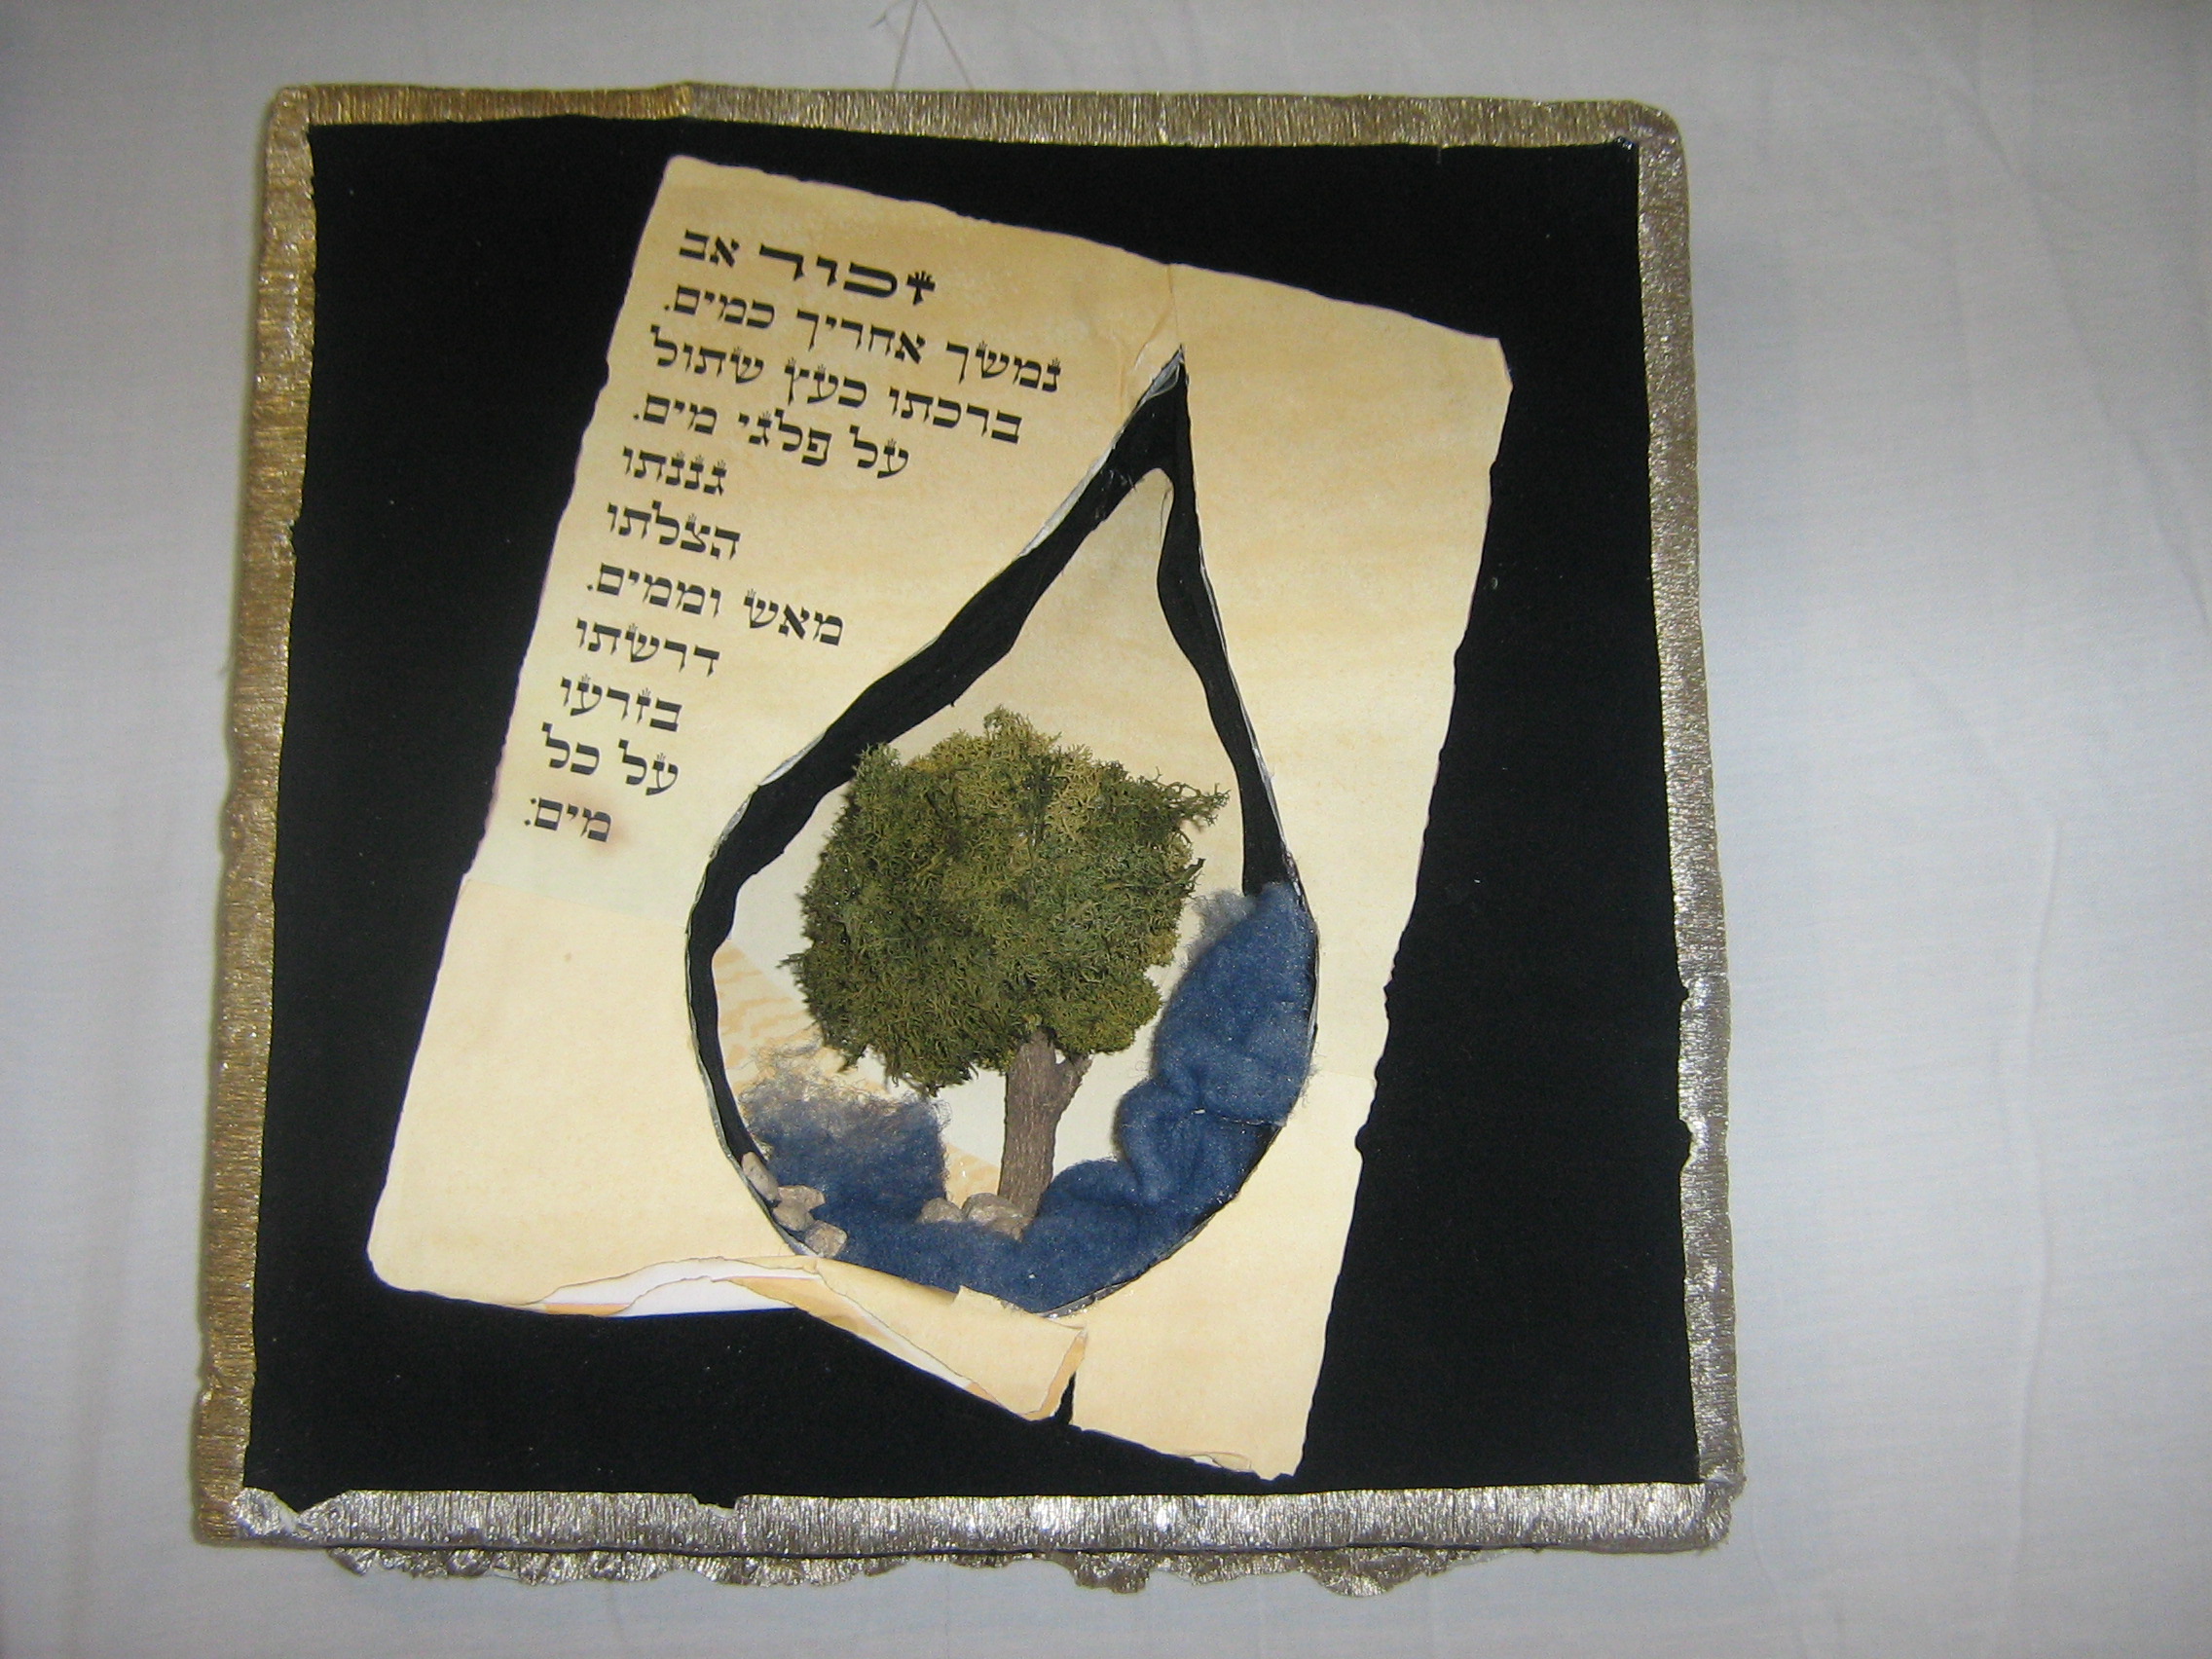 זכור אב
נמשך אחריך כמים.
ברכתו כעץ שתול
על פלגי מים.
גננתו
הצלתו
מאש וממים.
דרשתו
בזרעו
על כל
מים: